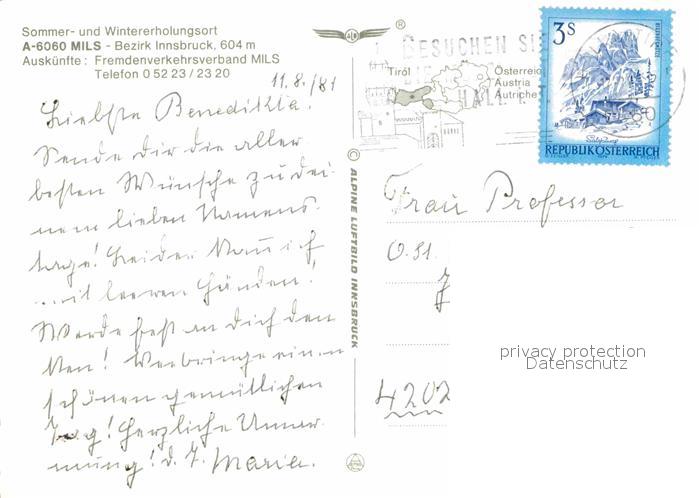 Sommer- und Wintererholungsort
A-6060 MILS - Bezirk Innsbruck, 604 m
Auskünfte: Fremdenverkehrsverband MILS
Telefon 0 52 23 / 23 20
11.8./81
Liebste Benedikta!
Sende dir die aller
besten Wünsche zu dei-
nem lieben Namens
tage! Leider kann ich
mit leeren Händen!
Werde fest an dich den
ken! Verbringe einen
schönen gemütlichen
Tag! Herzliche Umar
mung! d. J. Maria.
© ALPINE LUFTBILD INNSBRUCK
®
BESUCHEN SIE
Tirol
Österreich
Austria
Autriche
HALL
3S
REPUBLIK ÖSTERREICH
Frau Professor
4202
privacy protection
Datenschutz